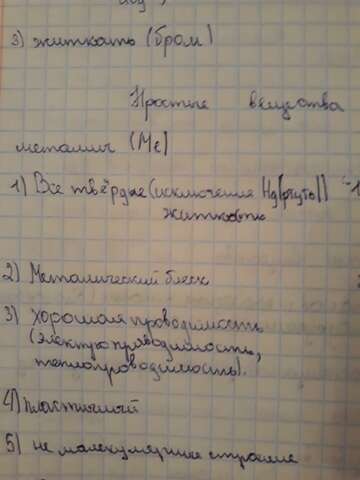 3) житкать (бром)
Простые вещества
металлы (Me)
1) Все твёрдые (исключения Hg(ртуть))
житкость
2) Металический блеск
3) Хорошая проводимость
(электропроводимость,
теплопроводимость).
4) пластичный
5) не малекулярное строение